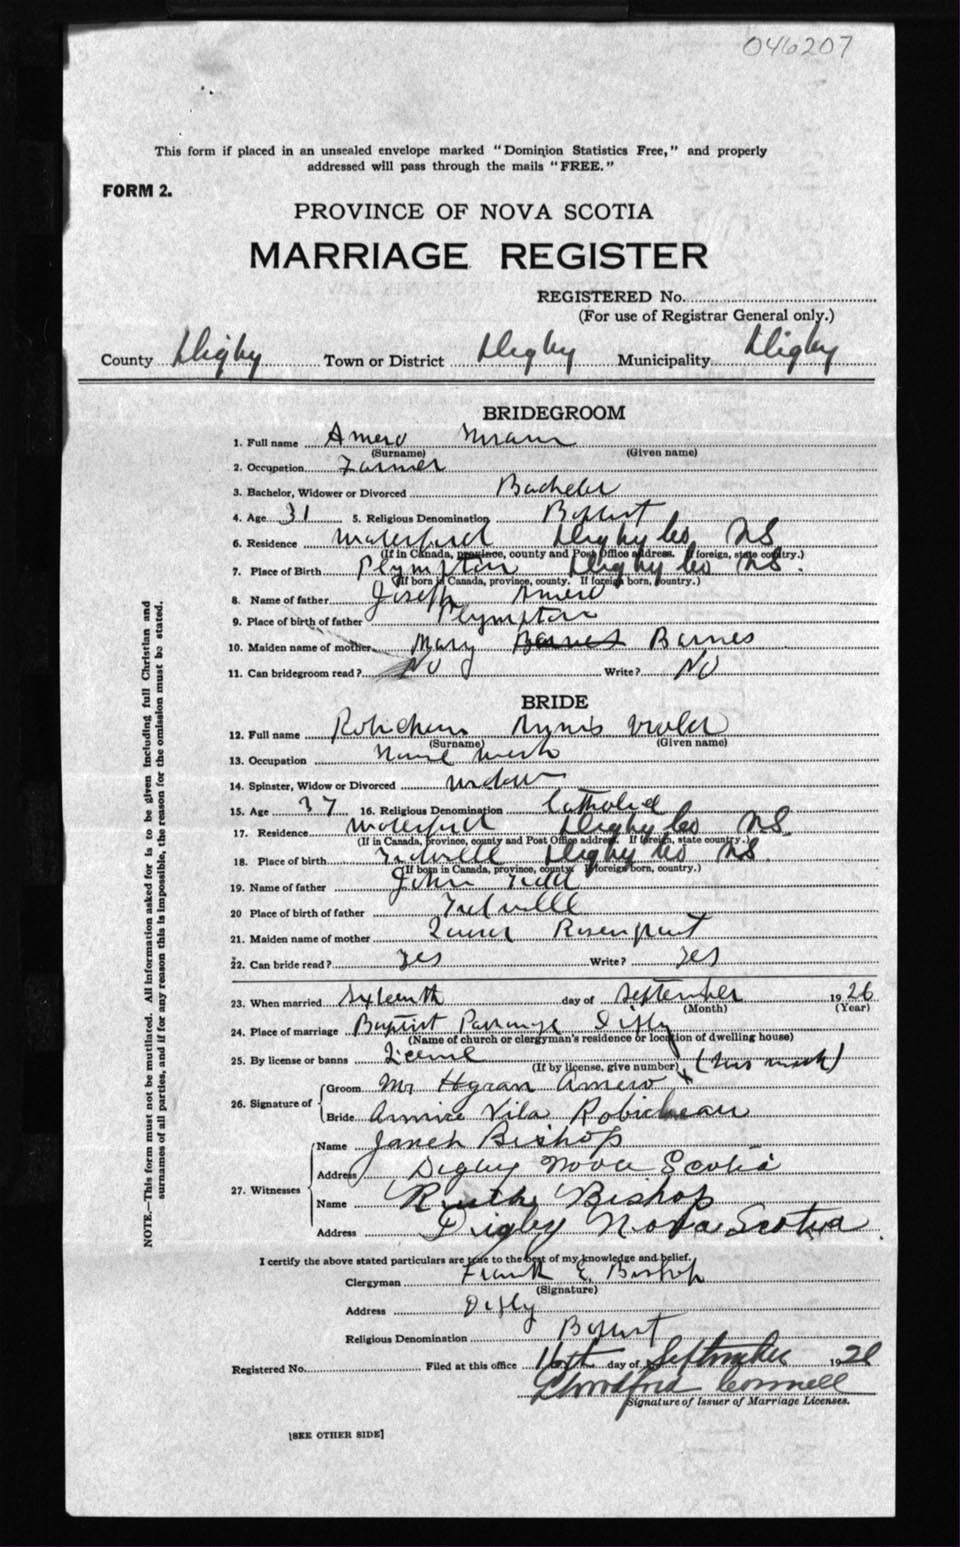 046207
This form if placed in an unsealed envelope marked "Dominion Statistics Free," and properly
addressed will pass through the mails "FREE."
FORM 2.
PROVINCE OF NOVA SCOTIA
MARRIAGE REGISTER
REGISTERED No.
(For use of Registrar General only.)
County Digby Town or District Digby Municipality Digby
BRIDEGROOM
1. Full name Amero
(Surname) (Given name)
2. Occupation Farmer
3. Bachelor, Widower or Divorced Bachelor
4. Age 31 5. Religious Denomination Baptist
6. Residence Waterford Digby Co NS
(If in Canada, province, county and Post Office address. If foreign, state country.)
7. Place of Birth Plympton Digby Co NS.
(If born in Canada, province, county. If foreign born, country.)
8. Name of father Joseph Amero
9. Place of birth of father Plympton
10. Maiden name of mother Mary Barnes Barnes
11. Can bridegroom read? No Write? No
BRIDE
12. Full name Robicheau Violet
(Surname) (Given name)
13. Occupation House work
14. Spinster, Widow or Divorced Widow
15. Age 37 16. Religious Denomination Catholic
17. Residence Waterford Digby Co NS
(If in Canada, province, county and Post Office address. If foreign, state country.)
18. Place of birth Digby Co NS.
(If born in Canada, province, county. If foreign born, country.)
19. Name of father John
20 Place of birth of father
21. Maiden name of mother
22. Can bride read? Yes Write? Yes
23. When married Sixteenth day of September 1926
(Month) (Year)
24. Place of marriage Baptist Parsonage Digby
(Name of church or clergyman's residence or location of dwelling house)
25. By license or banns License
(If by license, give number) (his mark)
26. Signature of
Groom Mr Hyran Amero X
Bride Annice Vila Robicheau
27. Witnesses
Name Bishop
Address Digby Nova Scotia
Name Ruth Bishop
Address Digby Nova Scotia
I certify the above stated particulars are true to the best of my knowledge and belief.
Clergyman Frank E Bishop
(Signature)
Address Digby
Religious Denomination Baptist
Registered No. Filed at this office 16th day of September 1926
Connell
Signature of Issuer of Marriage Licenses.
[SEE OTHER SIDE]
NOTE.—This form must not be mutilated. All information asked for is to be given including full Christian and
surnames of all parties, and if for any reason this is impossible, the reason for the omission must be stated.